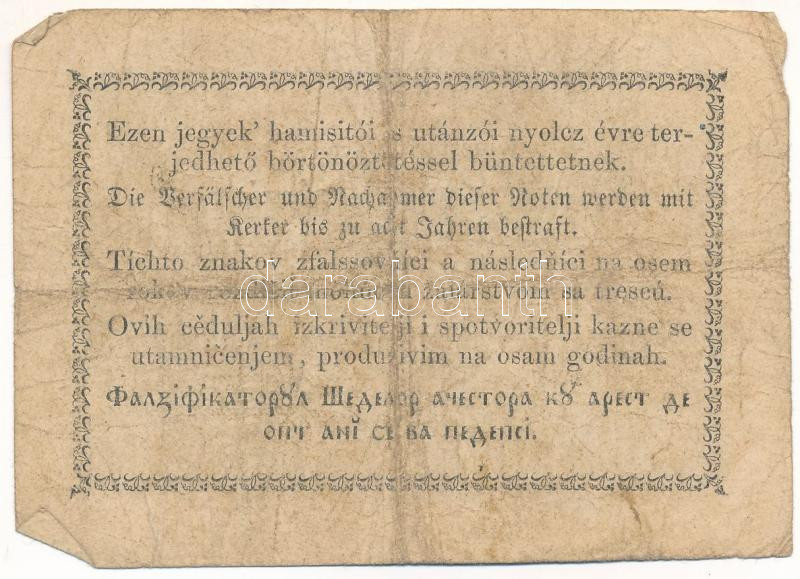 Ezen jegyek' hamisitói s utánzói nyolcz évre ter-
jedhető börtönöztetéssel büntettetnek.
Die Verfälscher und Nachahmer dieser Noten werden mit
Kerker bis zu acht Jahren bestraft.
Tíchto znakov zfalssovňíci a následňíci na osem
rokov žalárstvom sa trescú.
Ovih cěduljah izkrivitelji i spotvoritelji kazne se
utamničenjem, produživim na osam godinah.
Фалзіфікаторꙋл Шеделор ачестора кꙋ арест де
опт анĭ се ва педепсі.
darabanth